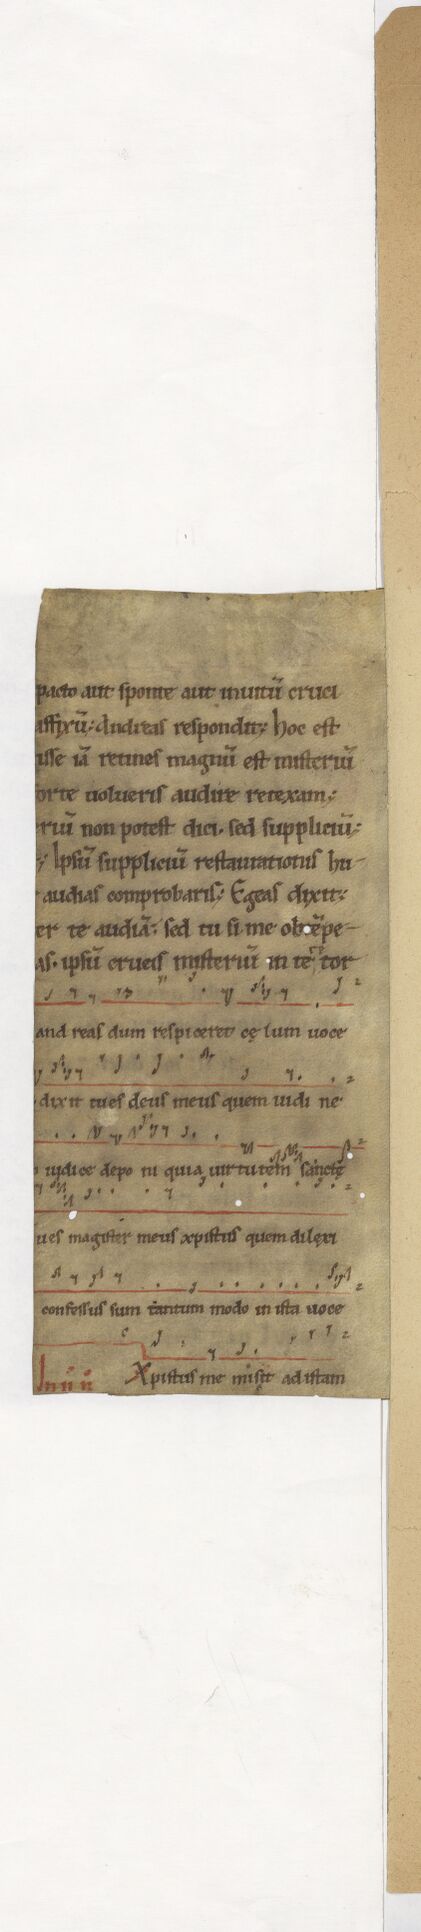 pacto aut sponte aut inuitū cruci
affixū; Andreas respondit; hoc est
isse iā retines magnū est misteriū
orte uolueris audire retexam;
eriū non potest dici. sed suppliciū;
; Ipsū suppliciū restaurationis hu-
audias comprobaris; Egeas dixit;
er te audiā. sed tu si me obtēpe-
as. ipsū crucis misteriū in te tor
and reas dum respiceret cęlum uoce
dixit tu es deus meus quem uidi ne
iudice depo ni quia uirtutem sanctę
u es magister meus xpistus quem dilexi
confessus sum tantum modo in ista uoce
Xpistus me misit ad istam